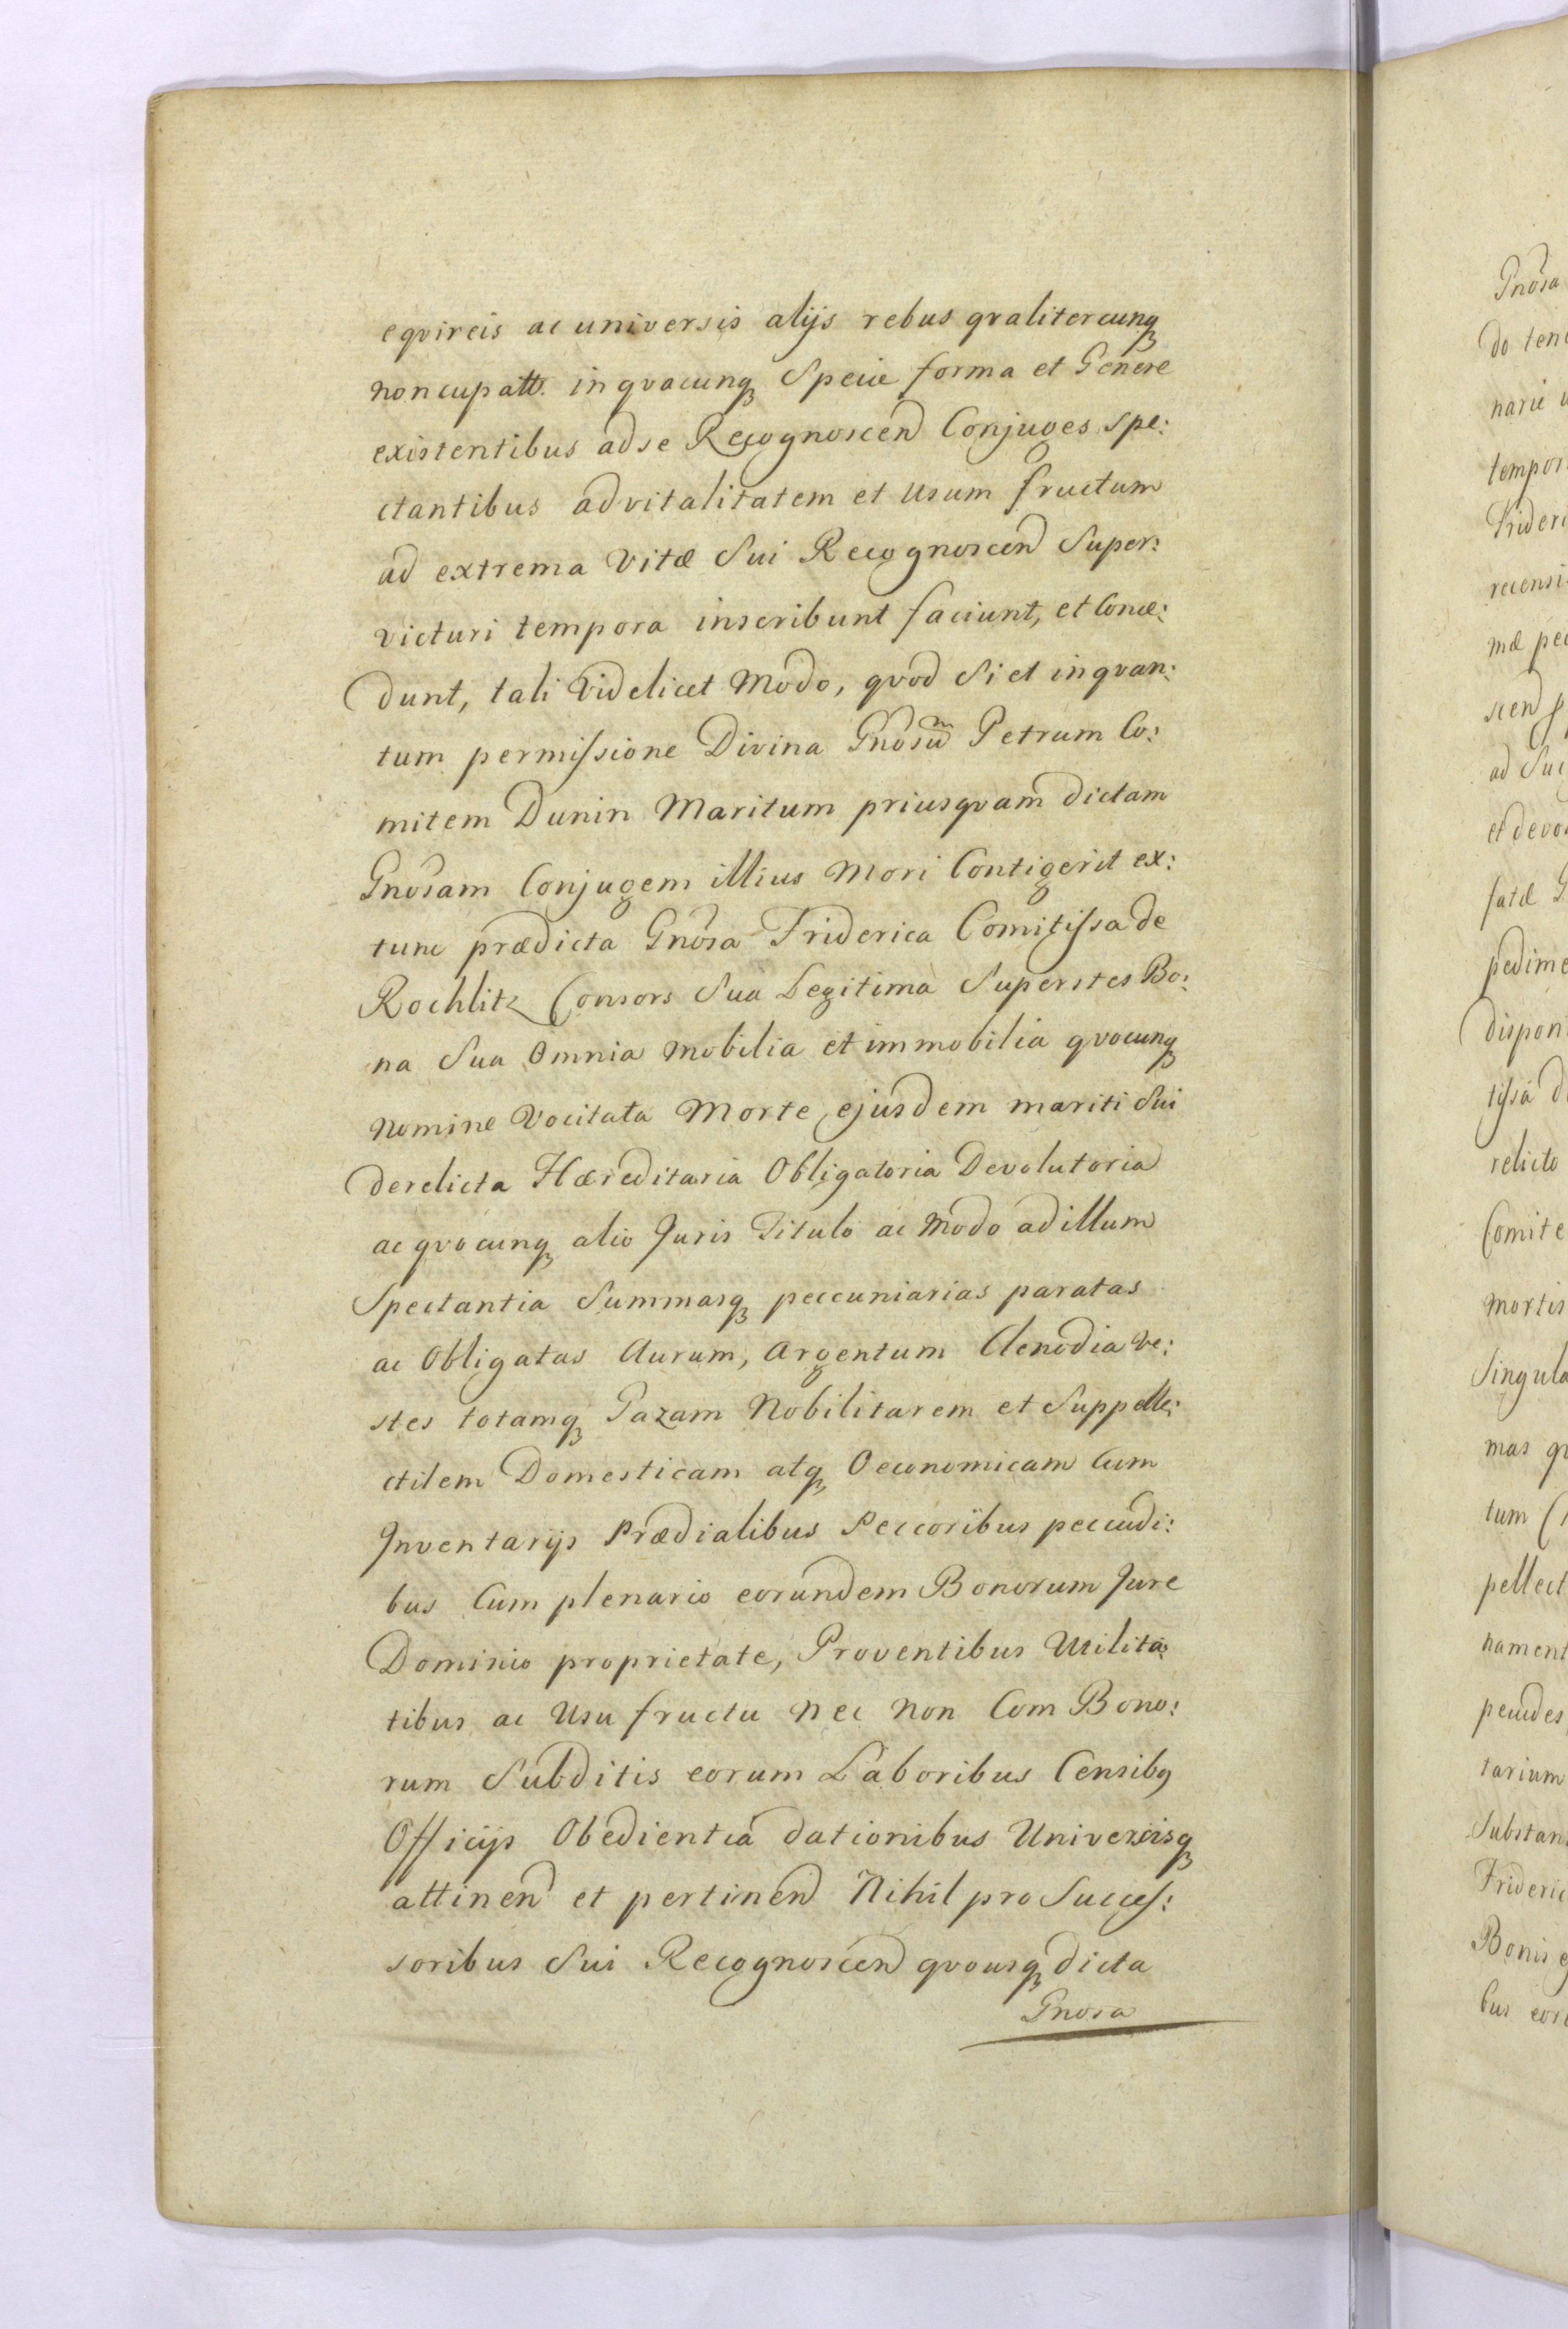 eqvireis ac universis alijs rebus qvalitercunq̃
noncupatt. in qvacunq̃ Specie forma et Genere
existentibus ad se Recognoscend Conjuges spe:
ctantibus ad vitalitatem et Usum fructum
ad extrema Vitæ Sui Recognoscend Super:
victuri tempora inscribunt faciunt, et Conce:
dunt, tali Videlicet Modo, qvod Si et in qvan:
tum permissione Divina Gnosũm Petrum Co:
mitem Dunin Maritum priusqvam dictam
Gnosam Conjugem illius Mori Contigerit ex:
tunc prædicta Gnosa Friderica Comitissa de
Rochlitz Consors Sua Legitima Superstes Bo:
na Sua Omnia mobilia et immobilia qvocunq̃
nomine Vocitata Morte ejusdem mariti Sui
derelicta Hæreditaria Obligatoria Devolutoria
ac qvocunq̃ alio Juris Titulo ac Modo ad illum
Spectantia Summasq̃ peccuniarias paratas
ac Obligatas Aurum, Argentum Clenodia ve:
stes totamq̃ Gazam Nobilitarem et Suppelle:
ctilem Domesticam atq̃ Oeconomicam Cum
Inventarijs Prædialibus Peccoribus peccudi:
bus Cum plenario eorundem Bonorum Jure
Dominio proprietate, Proventibus Utilita:
tibus ac Usu fructu nec non Com Bono:
rum Subditis eorum Laboribus Censibq
Officijs Obedientia dationibus Universisq̃
attinend et pertinend Nihil pro Succes:
soribus Sui Recognoscend qvousq̃ dicta
Gnosa
Gnosa
do ten
narie
tempor
Frideri
recensi
mæ pec
scend
ad Sui
et devo
fatæ G
pedime
dispon
tissa d
relicto
Comite
mortis
Singula
mas q
tum
pellect
nament
pecudes
tarium
Substan
Frideric
Bonis
bus eor